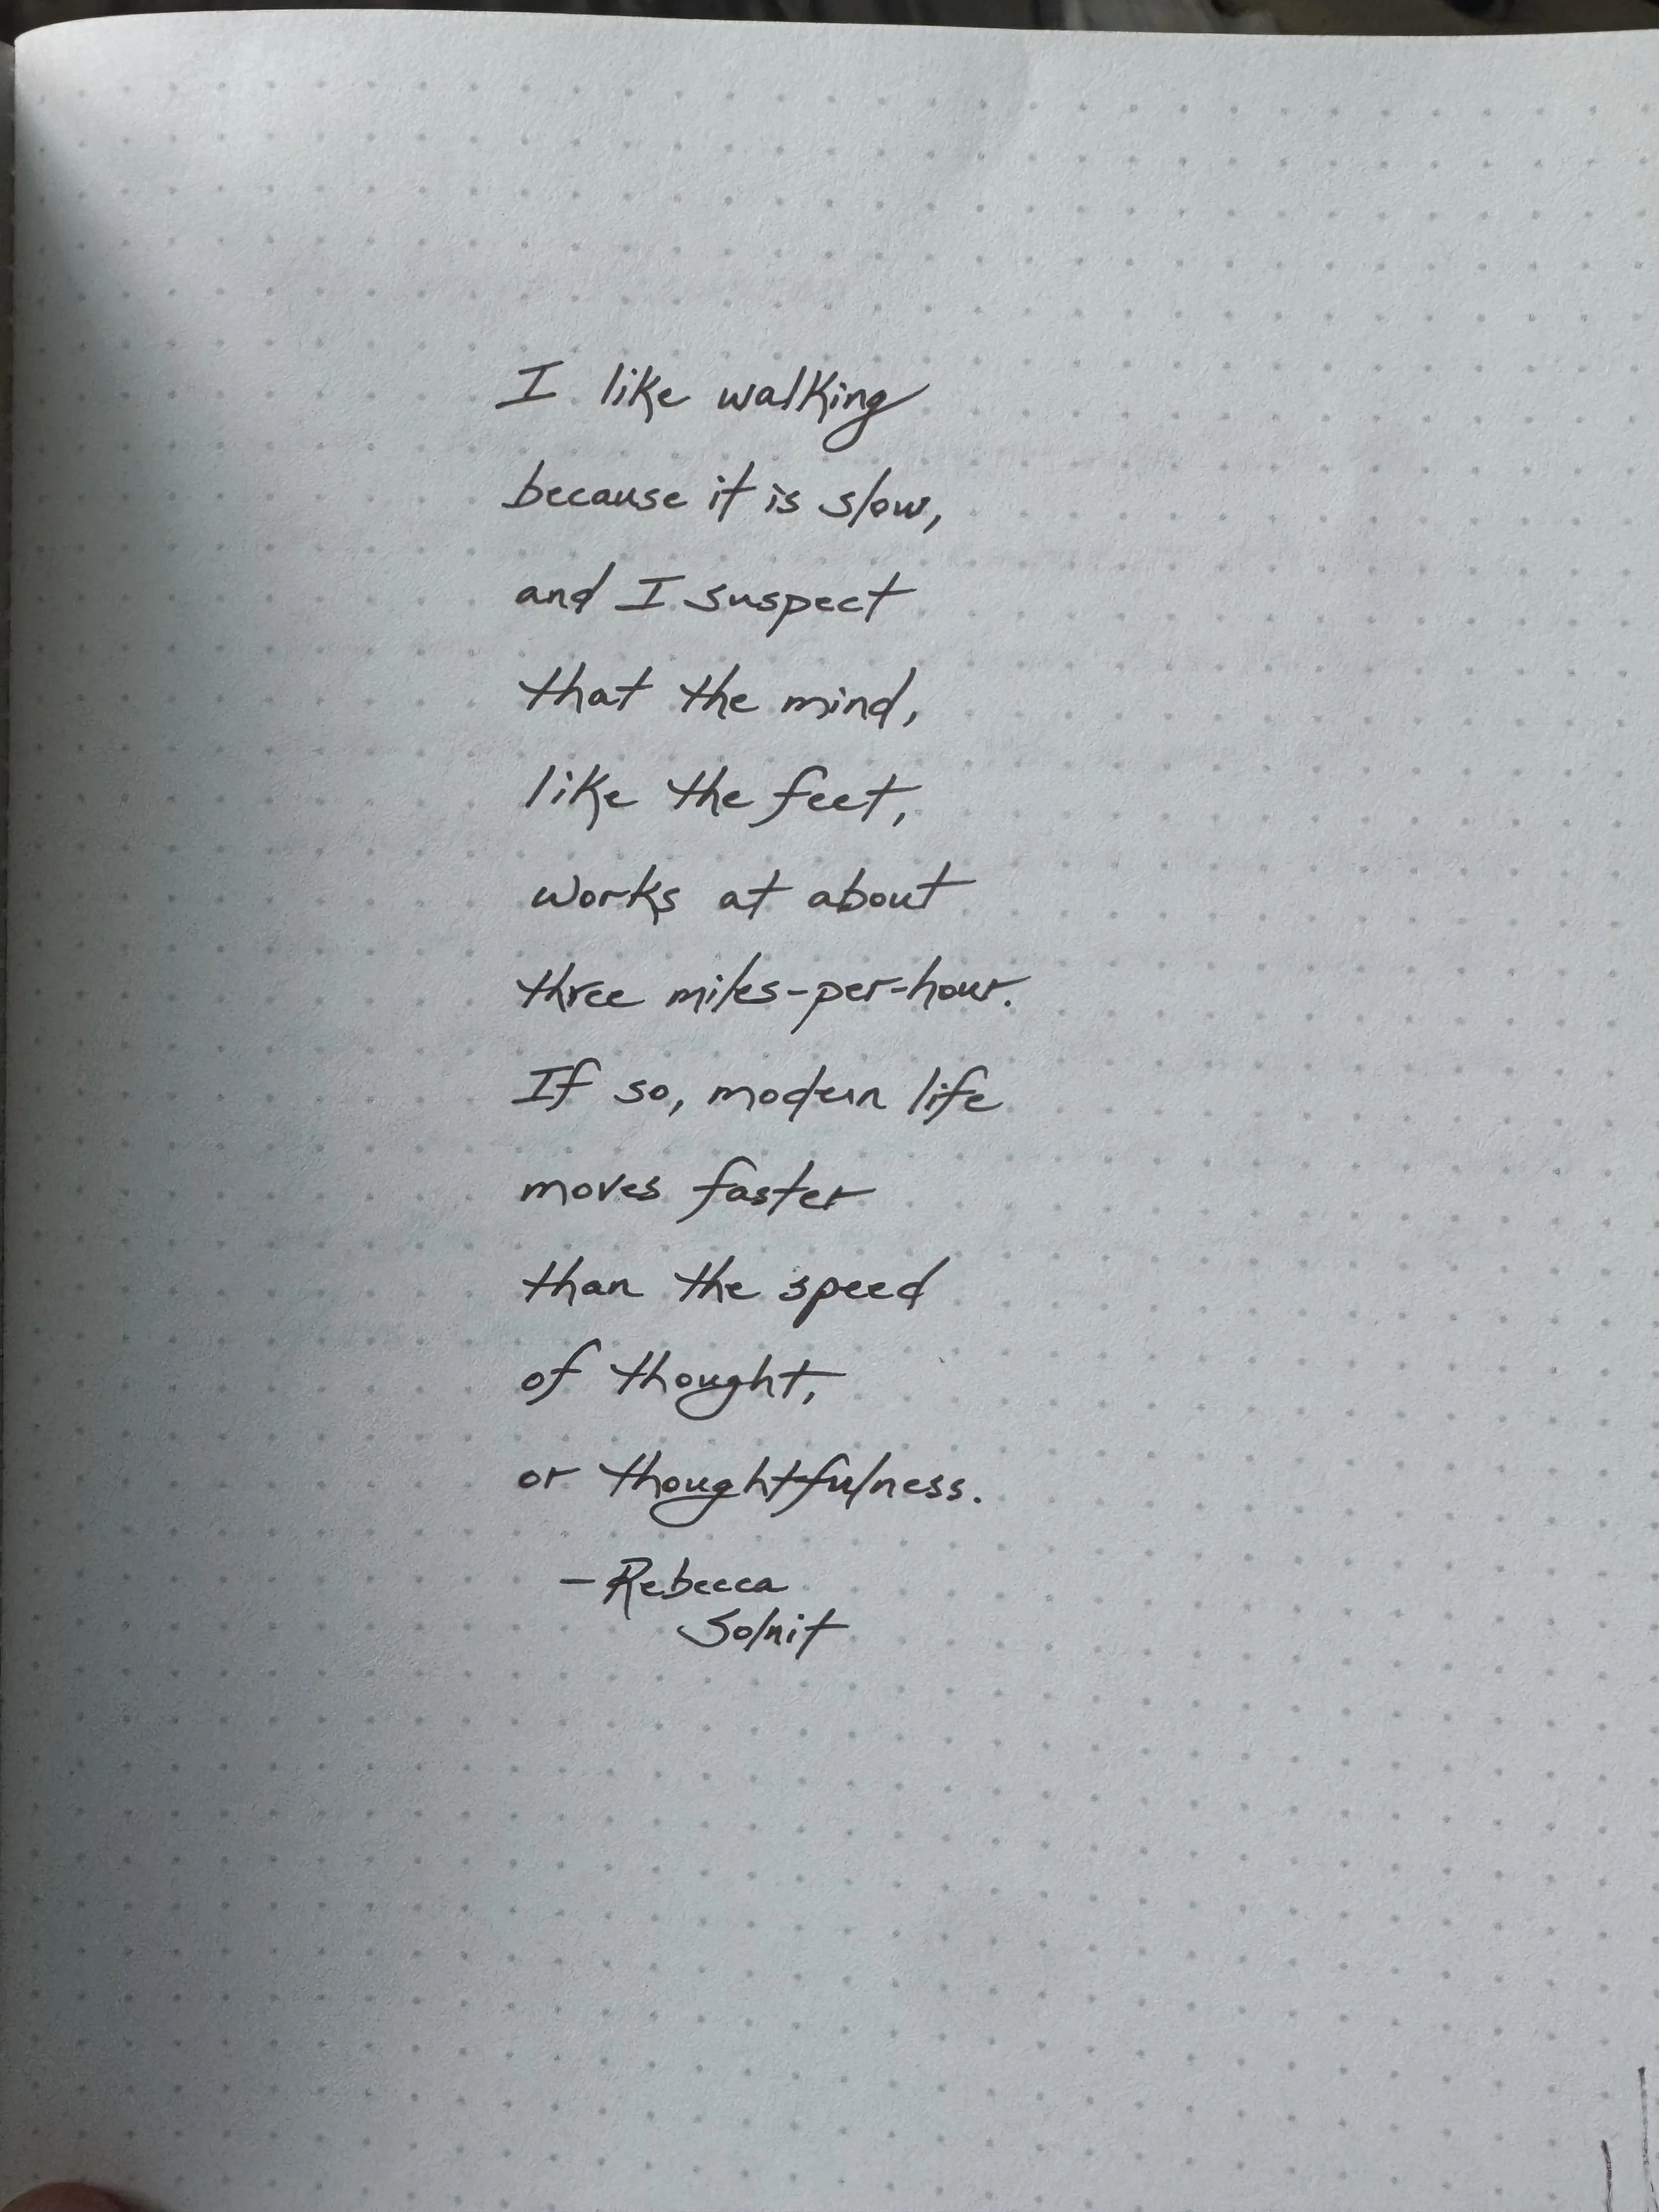 I like walking
because it is slow,
and I suspect
that the mind,
like the feet,
works at about
three miles-per-hour.
If so, modern life
moves faster
than the speed
of thought,
or thoughtfulness.
— Rebecca
Solnit